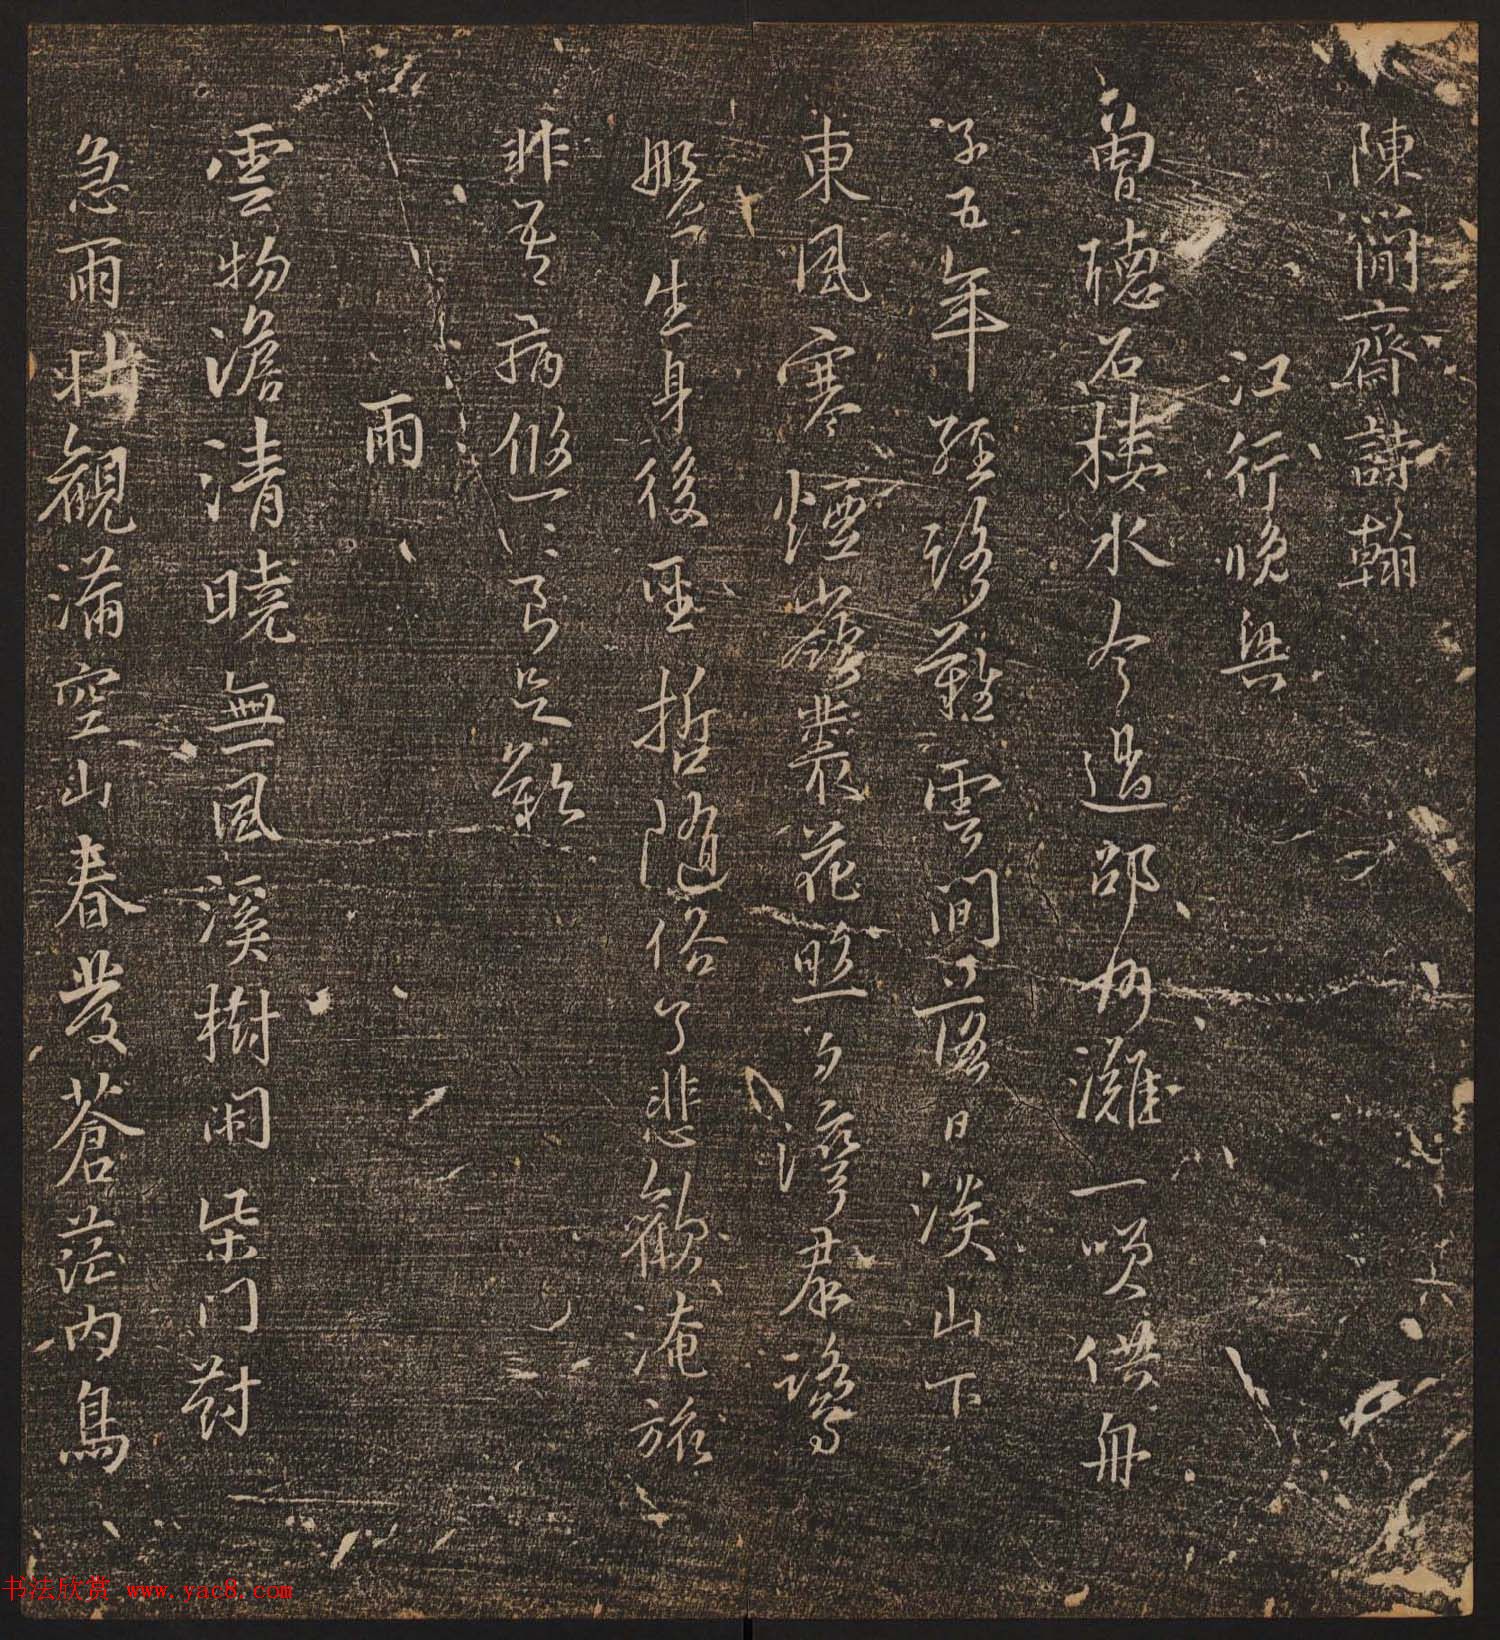 陳簡齋詩翰
江行晚興
曾聽石樓水今過邵州灘一笑供舟
子五年經路難雲間落日淡山下
東風寒煙嶺叢花照夕灣群鷺
盤生身後聖哲隨俗了悲歡淹旅
非吾病悠悠良足歎
雨
雲物澹清曉無風溪樹閑柴門對
急雨壯觀滿空山春發蒼茫內鳥
书法欣赏 www.yac8.com